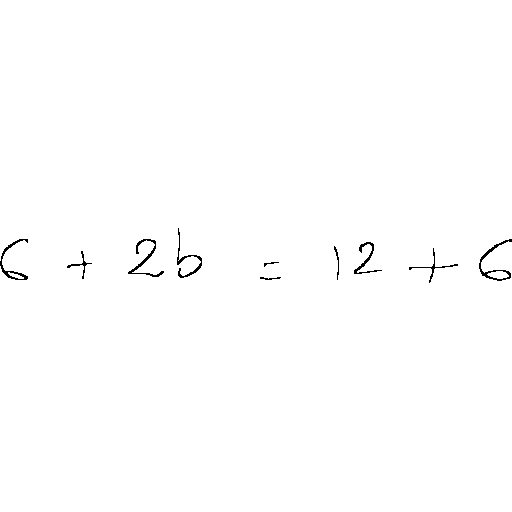 6 + 2b = 12 + 6